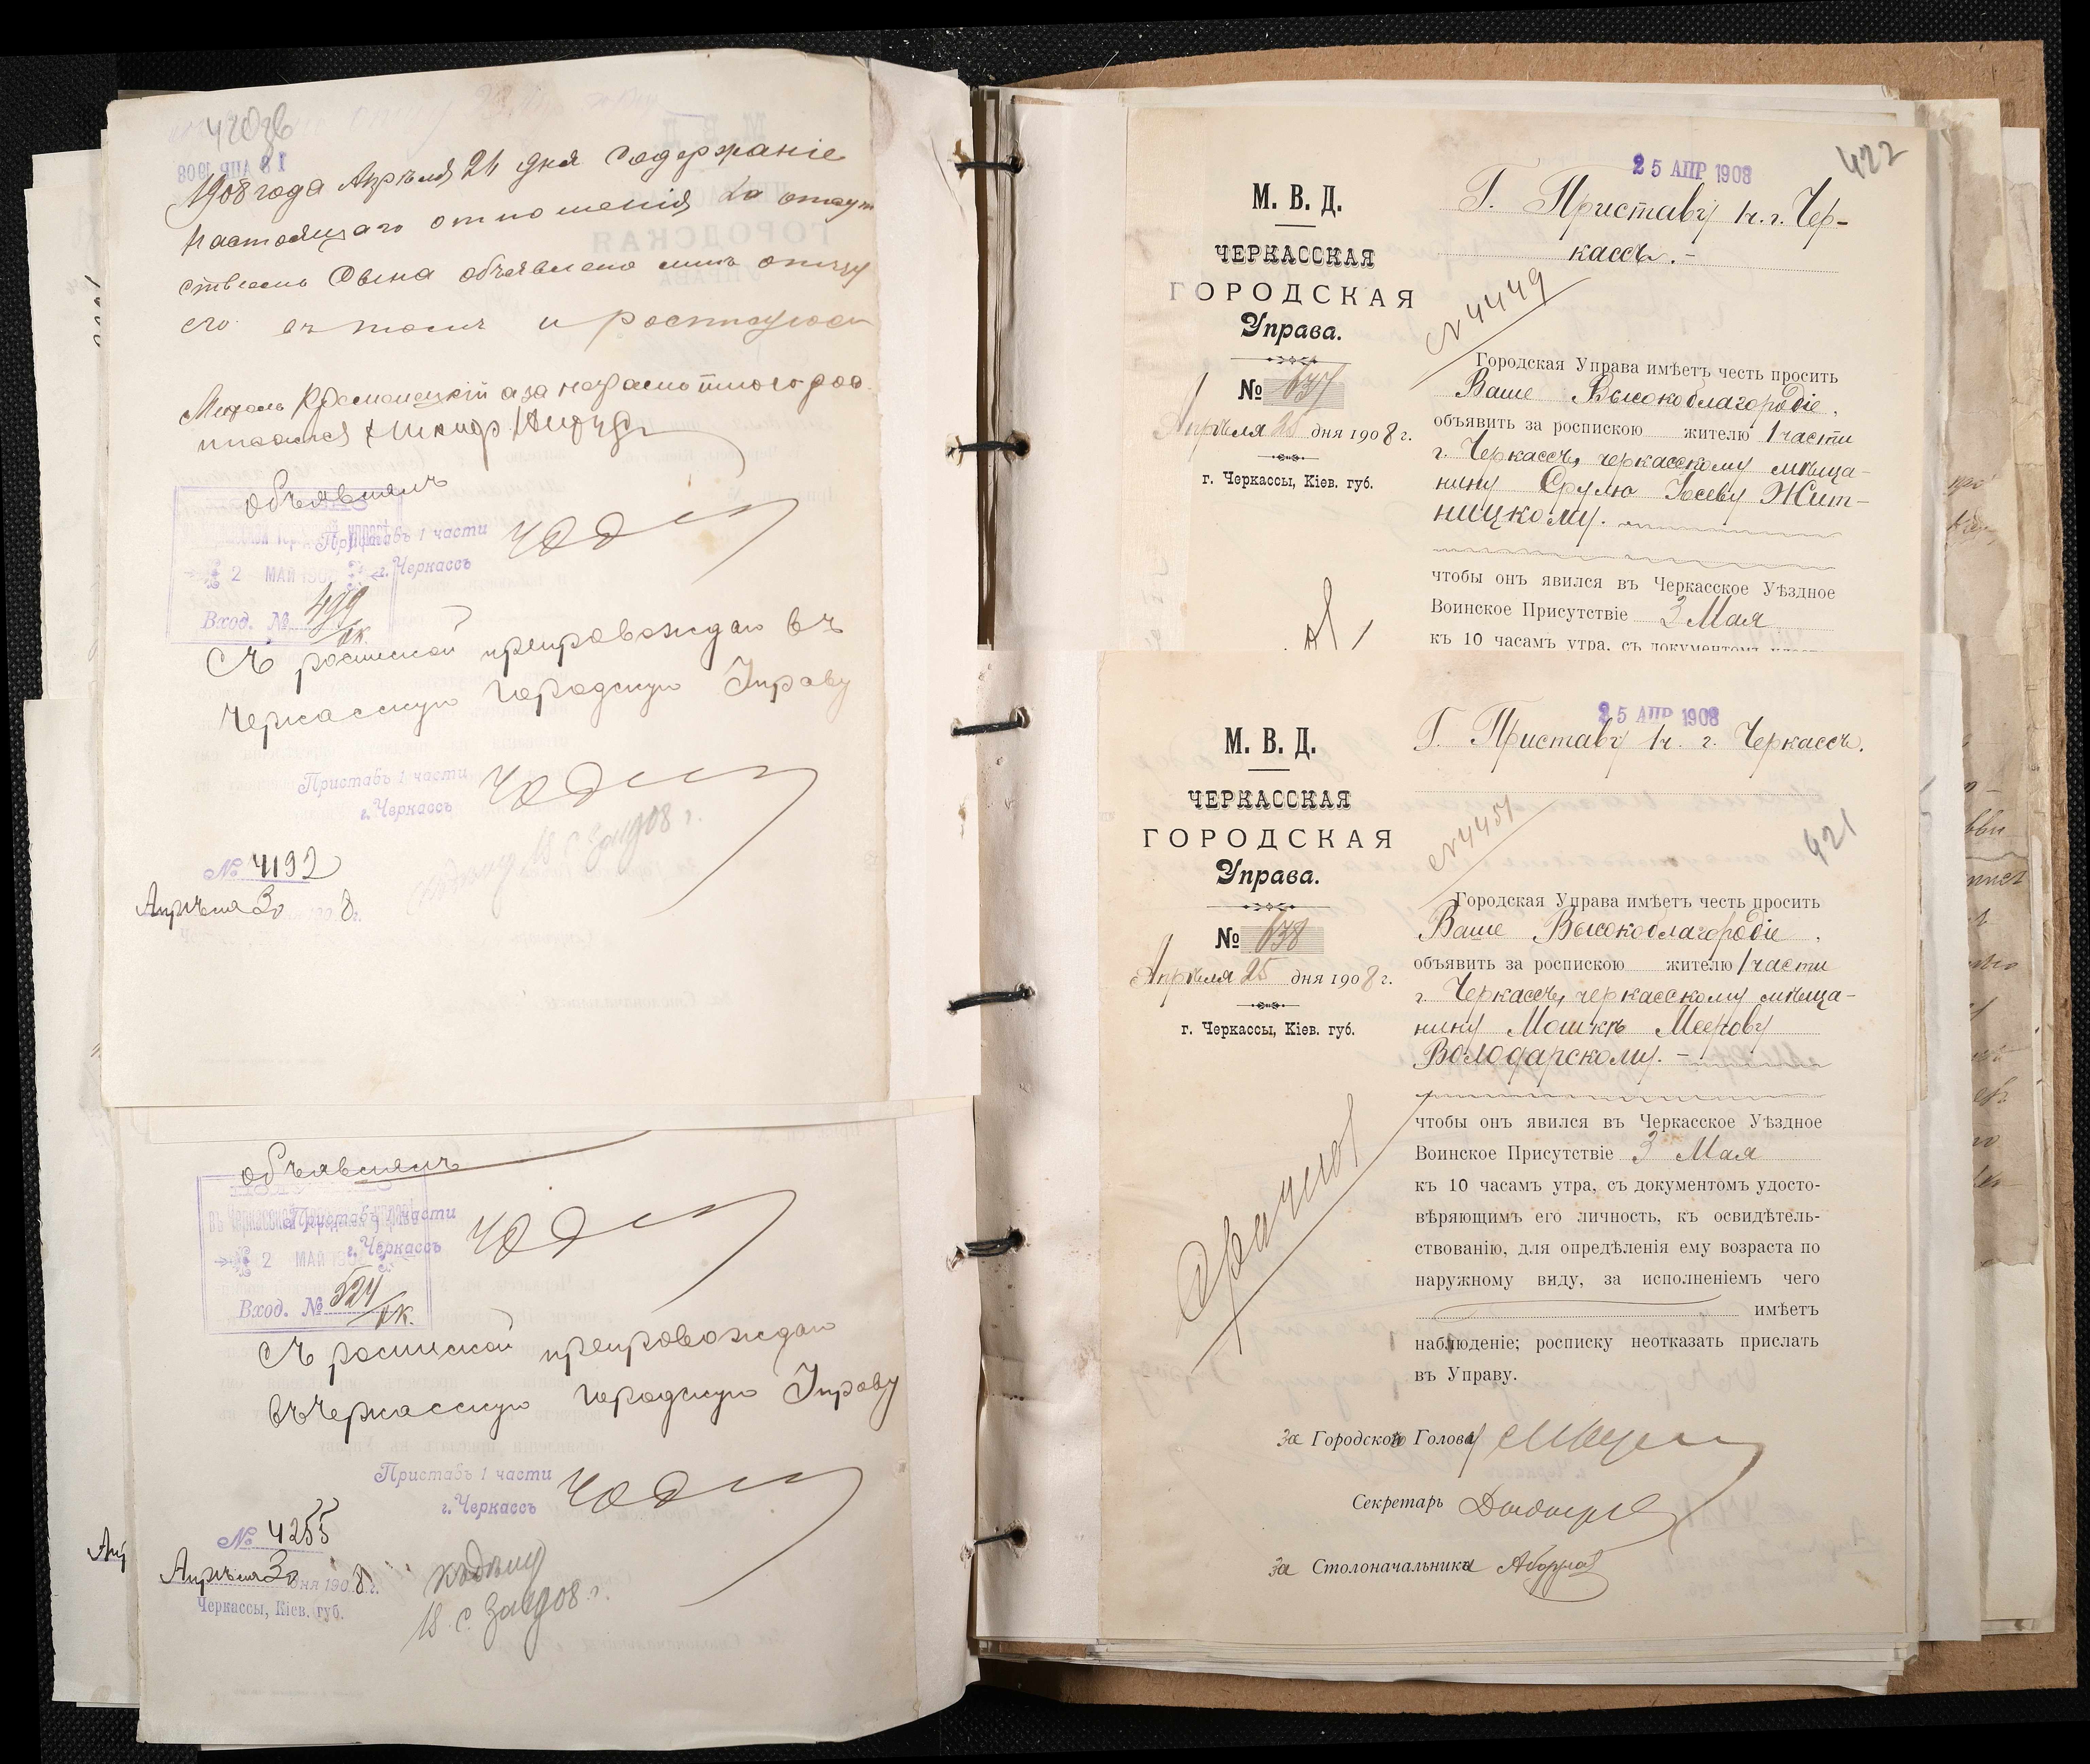 18 АПР 1908
1908 года Апрѣля 24 дня содержаніе
настоящаго отношенія за отсут
ствіемъ сына объявлено мнѣ отцу
его въ томъ и росписуюсь
объявилъ
Приставъ 1 части
г. Черкассъ
2 МАЙ 190
Вход. № 499
С росписской препровождаю въ
Черкасскую городскую Управу
Приставъ 1 части
г. Черкассъ
№ 4192
Апрѣля 30 8
объявилъ
Приставъ 1 части
г. Черкассъ
2 МАЙ 190
Вход. № 524
Съ росписской препровождаю
въ Черкасскую городскую Управу
Приставъ 1 части
г. Черкассъ
№ 4255
Апрѣля 30 дня 1908 г.
Черкассы, Кіев. губ.
422
25 АПР 1908
М. В. Д.
ЧЕРКАССКАЯ
ГОРОДСКАЯ
Управа.
№ 637
Апрѣля 25 дня 1908 г.
г. Черкассы, Кіев. губ.
Г. Приставу 1 ч. г. Чер-
кассъ.-
№ 4449
Городская Управа имѣетъ честь просить
Ваше Высокоблагородіе,
объявить за роспискою жителю 1 части
г. Черкассъ, черкасскому мѣща-
нину Срулю Іосеву Жит-
ницкому.
чтобы онъ явился въ Черкасское Уѣздное
Воинское Присутствіе 3 Мая
къ 10 часамъ утра, съ документомъ
25 АПР 1908
М. В. Д.
ЧЕРКАССКАЯ
ГОРОДСКАЯ
Управа.
№ 638
Апрѣля 25 дня 1908 г.
г. Черкассы, Кіев. губ.
Г. Приставу 1 ч. г. Черкассъ.
421
№ 4457
Городская Управа имѣетъ честь просить
Ваше Высокоблагородіе,
объявить за роспискою жителю 1 части
г. Черкассъ, черкасскому мѣща-
нину Мошкѣ Меерову
Володарскому.-
чтобы онъ явился въ Черкасское Уѣздное
Воинское Присутствіе 3 Мая
къ 10 часамъ утра, съ документомъ удосто-
вѣряющимъ его личность, къ освидѣтель-
ствованію, для опредѣленія ему возраста по
наружному виду, за исполненіемъ чего
имѣетъ
наблюденіе; росписку неотказать прислать
въ Управу.
За Городского Голову
Секретарь
За Столоначальника